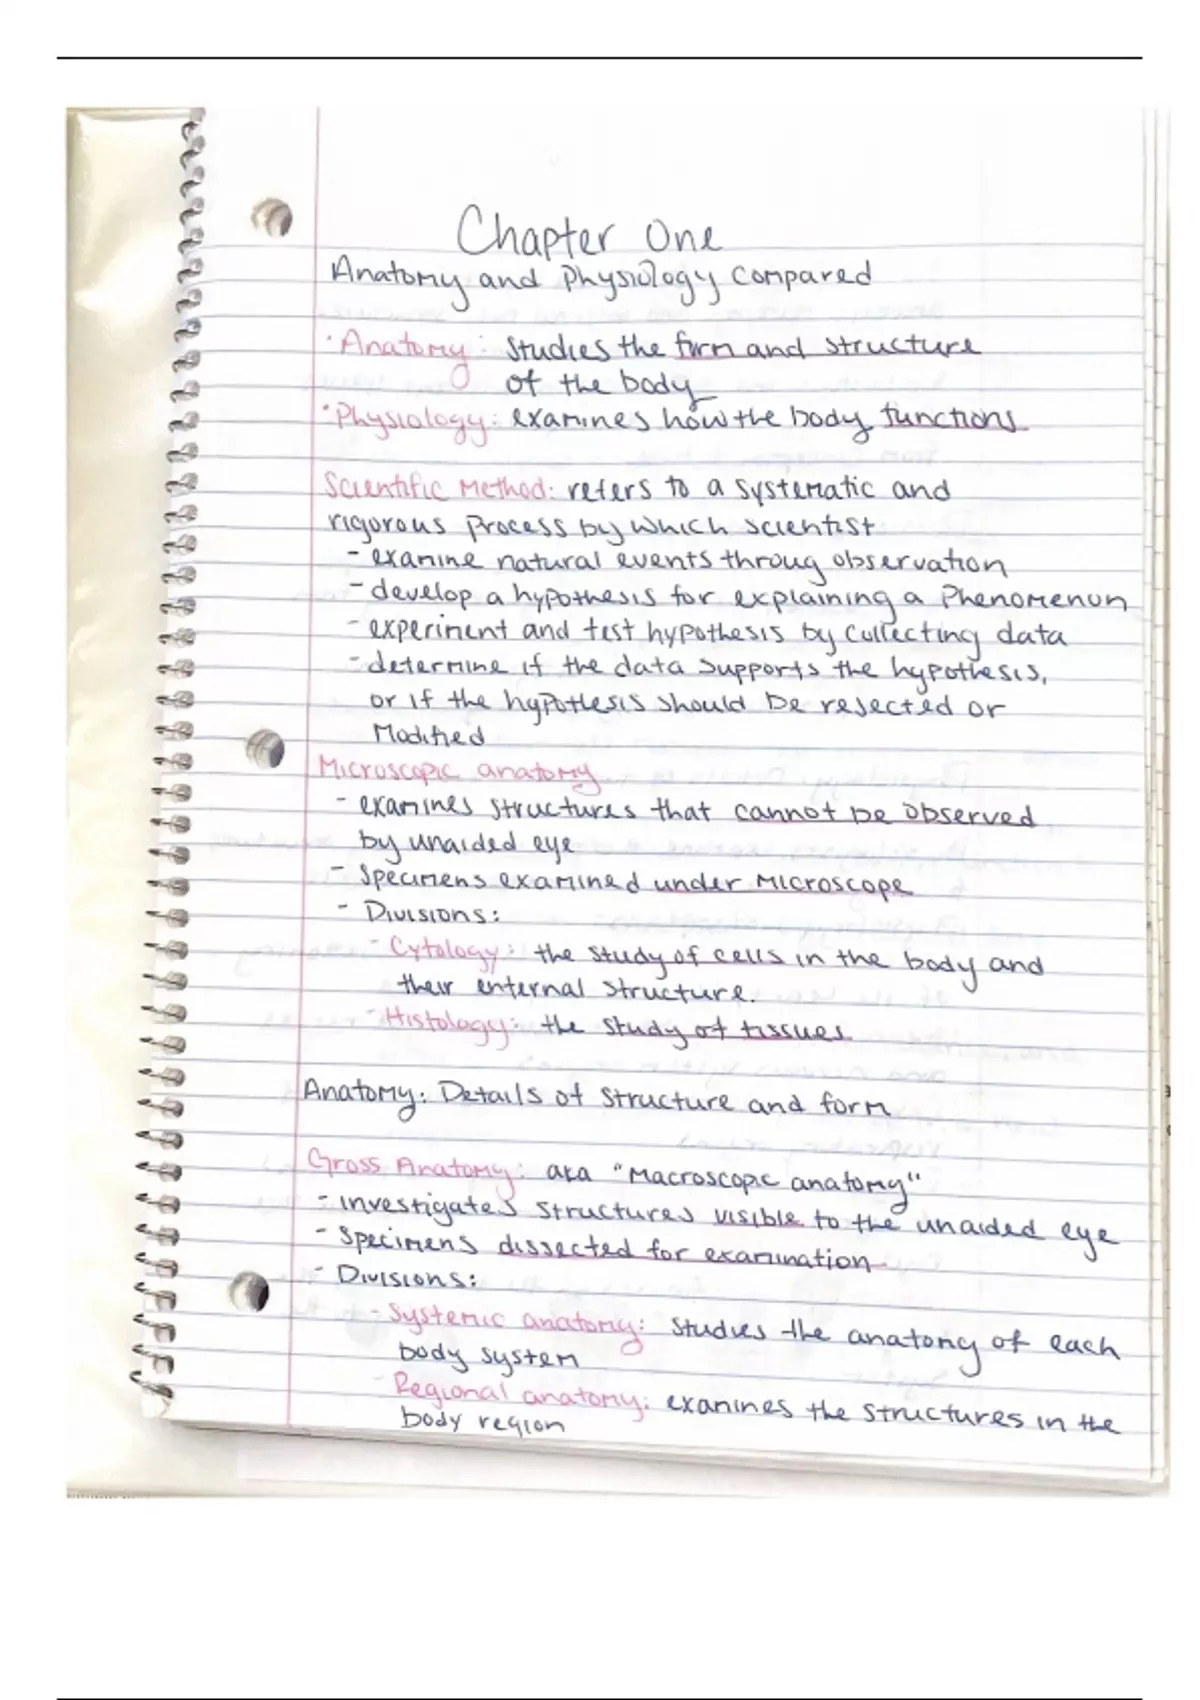 Chapter One
Anatomy and Physiology Compared
· Anatomy: Studies the form and structure
of the body
· Physiology: examines how the body functions
Scientific Method: refers to a systematic and
rigorous process by which scientist
- examine natural events throug observation
- develop a hypothesis for explaining a Phenomenon
- experiment and test hypothesis by collecting data
- determine if the data supports the hypothesis,
or if the hypothesis should be rejected or
Modified
Microscopic anatomy
- examines structures that cannot be observed
by unaided eye
- Specimens examined under Microscope
- Divisions:
- Cytology: the study of cells in the body and
their enternal structure.
- Histology: the study of tissues
Anatomy: Details of structure and form
Gross Anatomy: aka "Macroscopic anatomy"
- investigates structures visible to the unaided eye
- Specimens dissected for examination
- Divisions:
- Systemic anatomy: studies the anatomy of each
body system
- Regional anatomy: examines the structures in the
body region